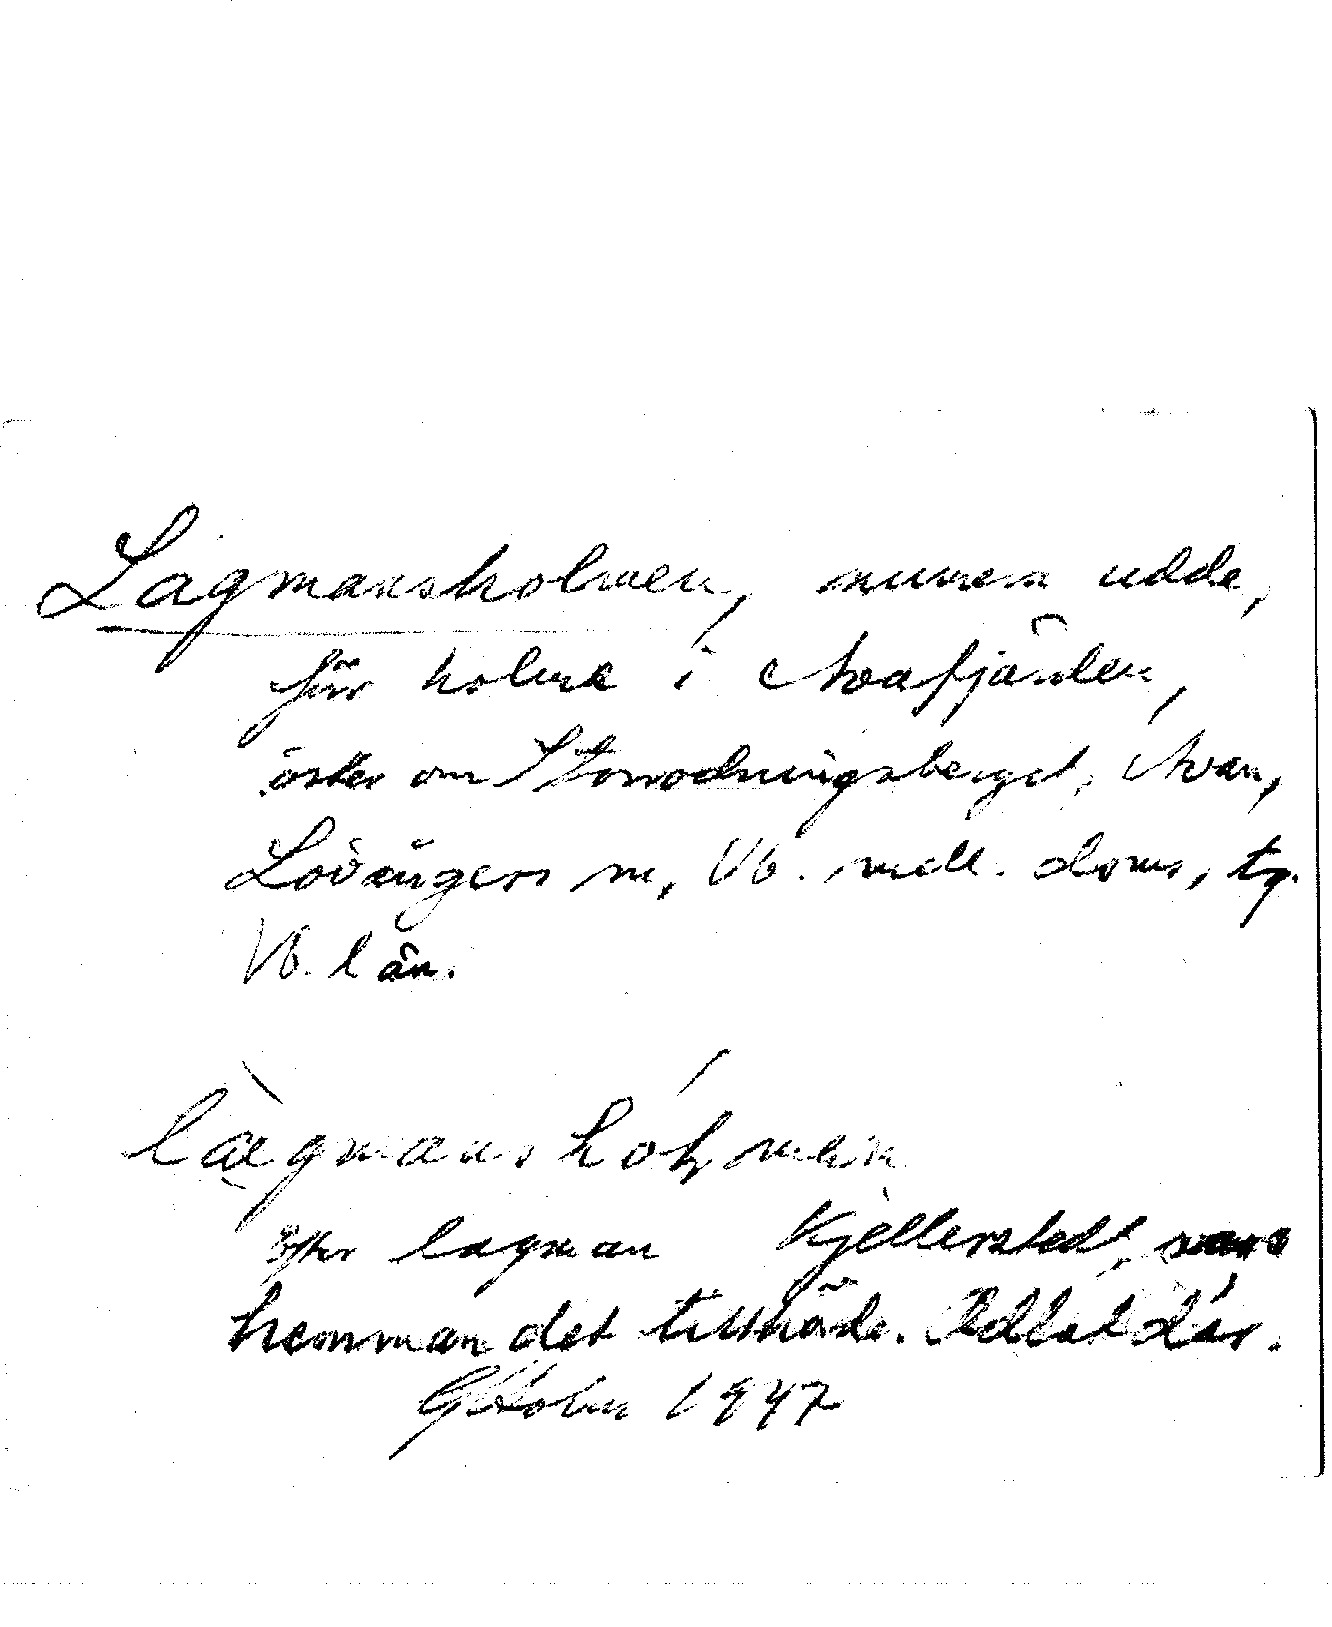 Lagmansholmen, numera udde,
förr holme i Avafjärden,
öster om Storrodningsberget, Avan,
Lövångers sn, Vb. mell. doms, tg.
Vb. län.
lagmanshol̥men
Efter lagman Kjellerstedt, vars
hemman det tillhörde. Odlat där.
G Holm 1947